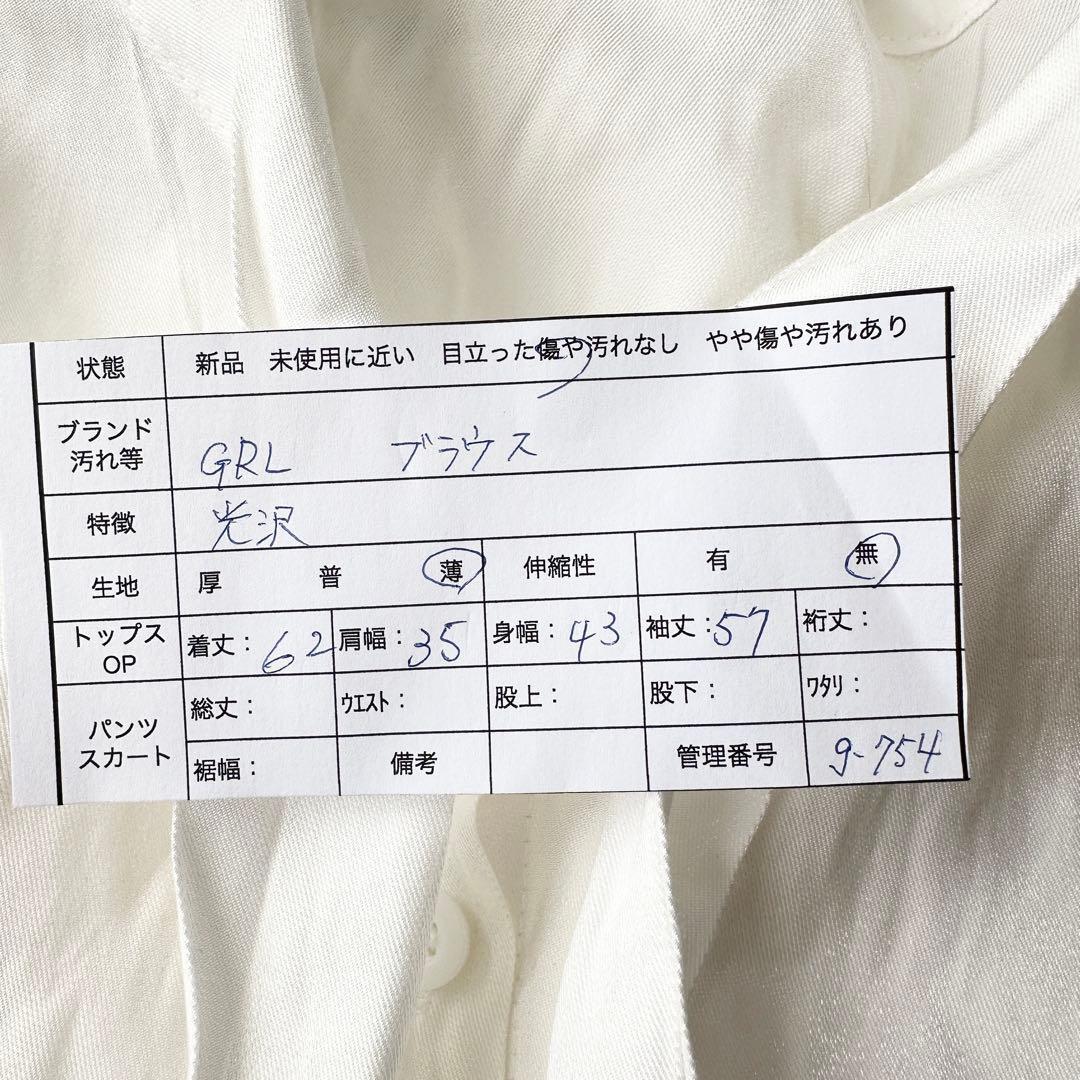 状態 新品 未使用に近い 目立った傷や汚れなし やや傷や汚れあり
ブランド
汚れ等 GRL ブラウス
特徴 光沢
生地 厚 普 薄 伸縮性 有 無
トップス
OP 着丈：62 肩幅：35 身幅：43 袖丈：57 裄丈：
パンツ
スカート 総丈： ウエスト： 股上： 股下： ワタリ：
裾幅： 備考 管理番号 g-754